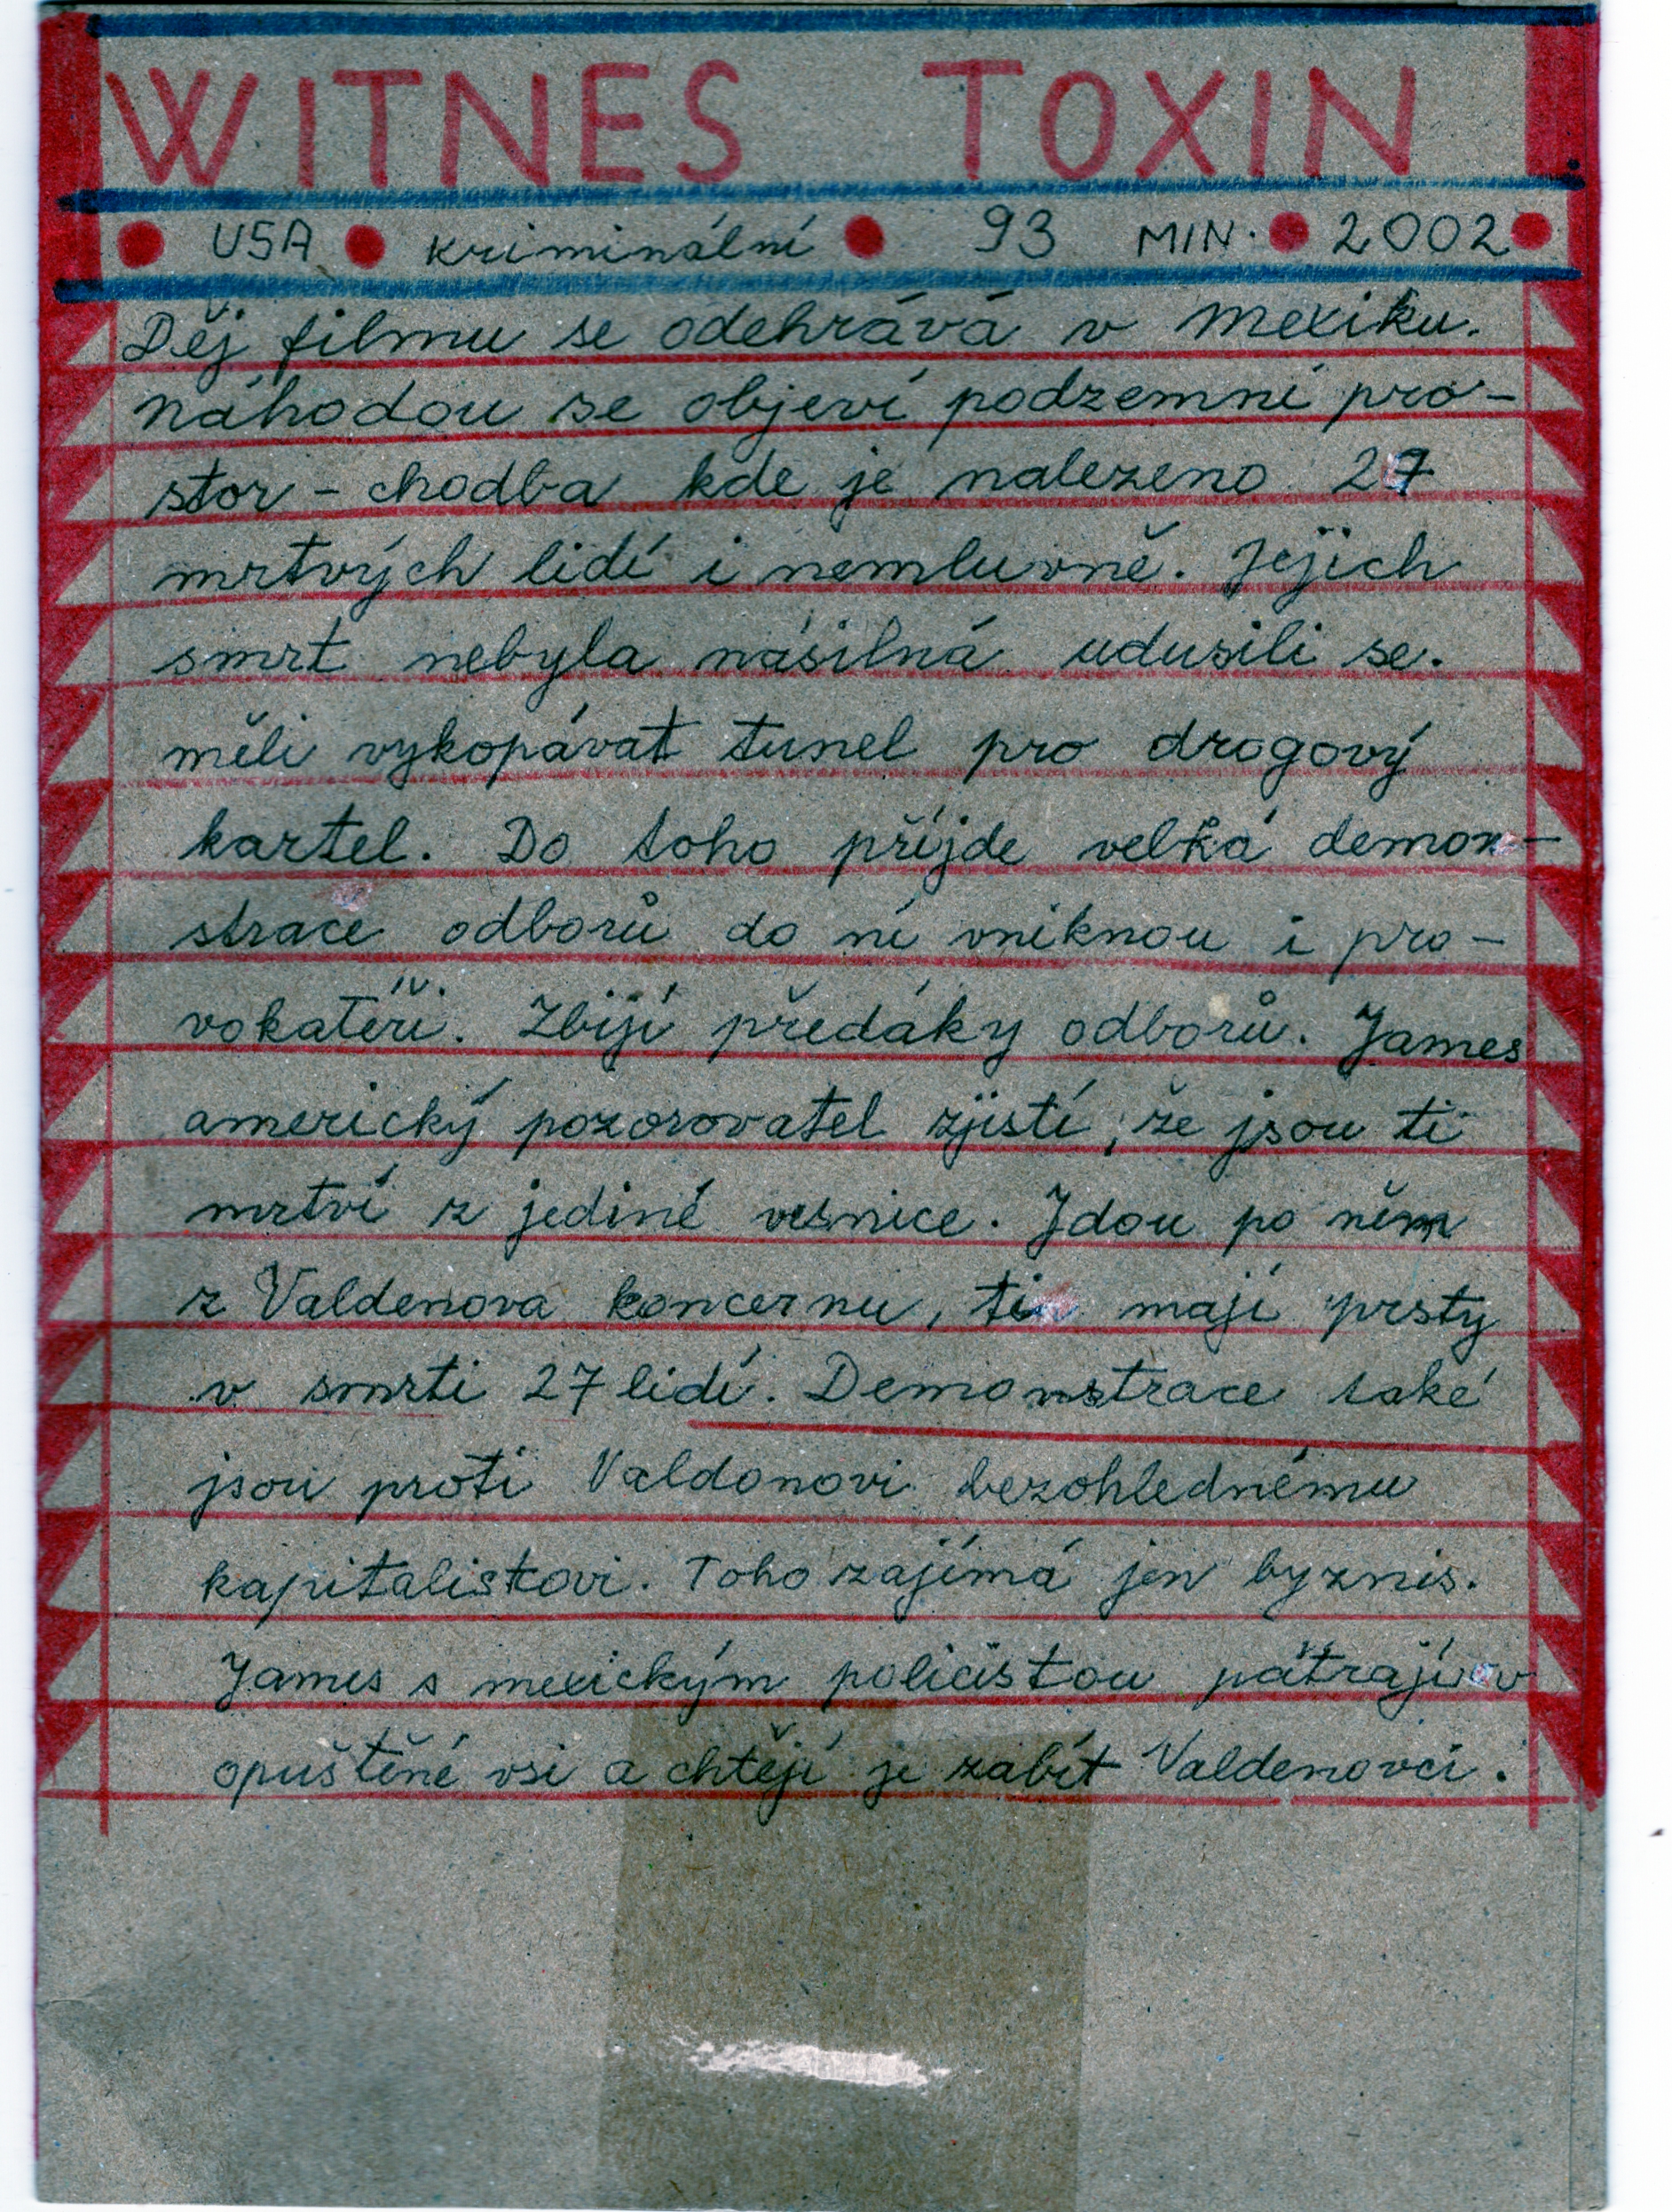 WITNES TOXIN
USA kriminální 93 MIN. 2002
Děj filmu se odehrává v mexiku.
náhodou se objeví podzemní pro-
stor - chodba kde je nalezeno 27
mrtvých lidí i nemluvně. Jejich
smrt nebyla násilná udusili se.
měli vykopávat tunel pro drogový
kartel. Do toho přijde velká demon-
strace odborů do ní vniknou i pro-
vokatéři. Zbijí předáky odborů. James
americký pozorovatel zjistí, že jsou ti
mrtví z jediné vesnice. Jdou po něm
z Valdenova koncernu, ti mají prsty
v smrti 27 lidí. Demonstrace také
jsou proti Valdonovi bezohlednému
kapitalistovi. Toho zajímá jen byznis.
James s mexickým policistou pátrají v
opuštěné vsi a chtějí je zabít Valdenovci.